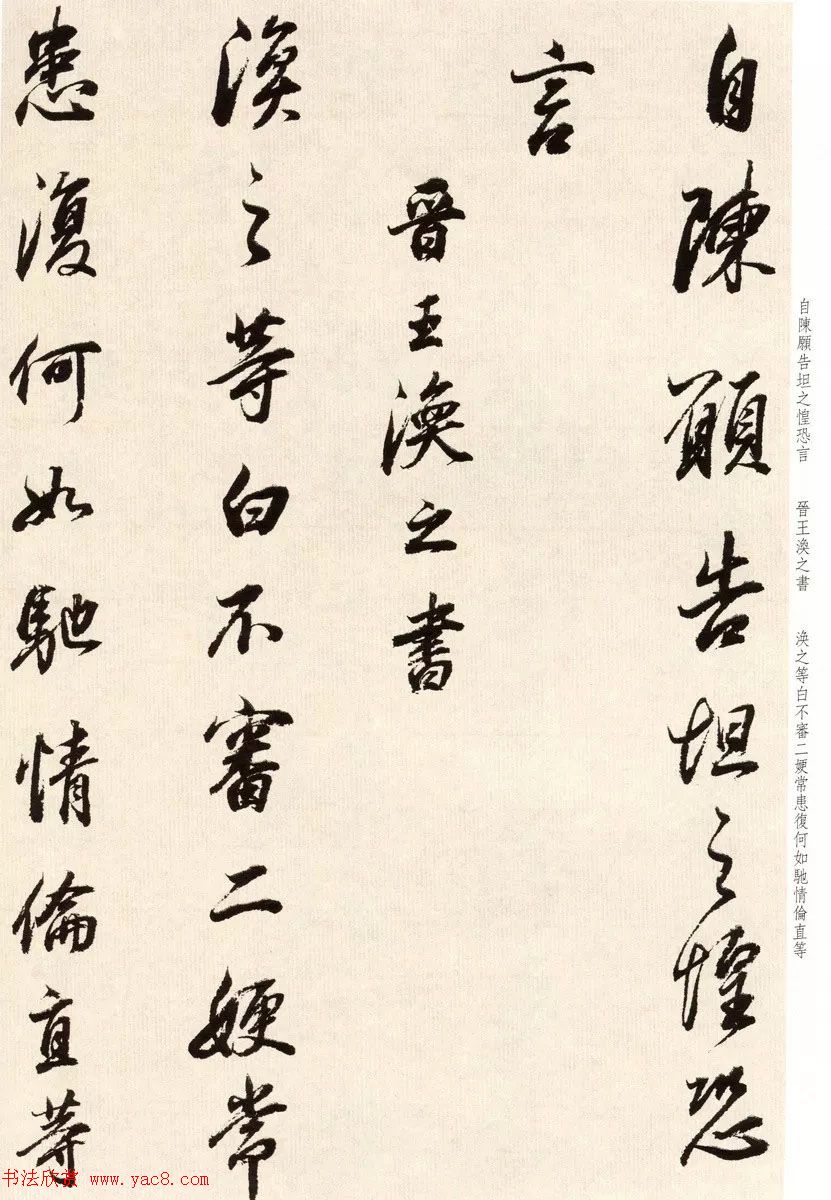 自陳願告坦之惶恐
言
晉王渙之書
渙之等白不審二㛐常
患復何如馳情倫直等
自陳願告坦之惶恐言　晉王渙之書　渙之等白不審二㛐常患復何如馳情倫直等
书法欣赏 www.yac8.com